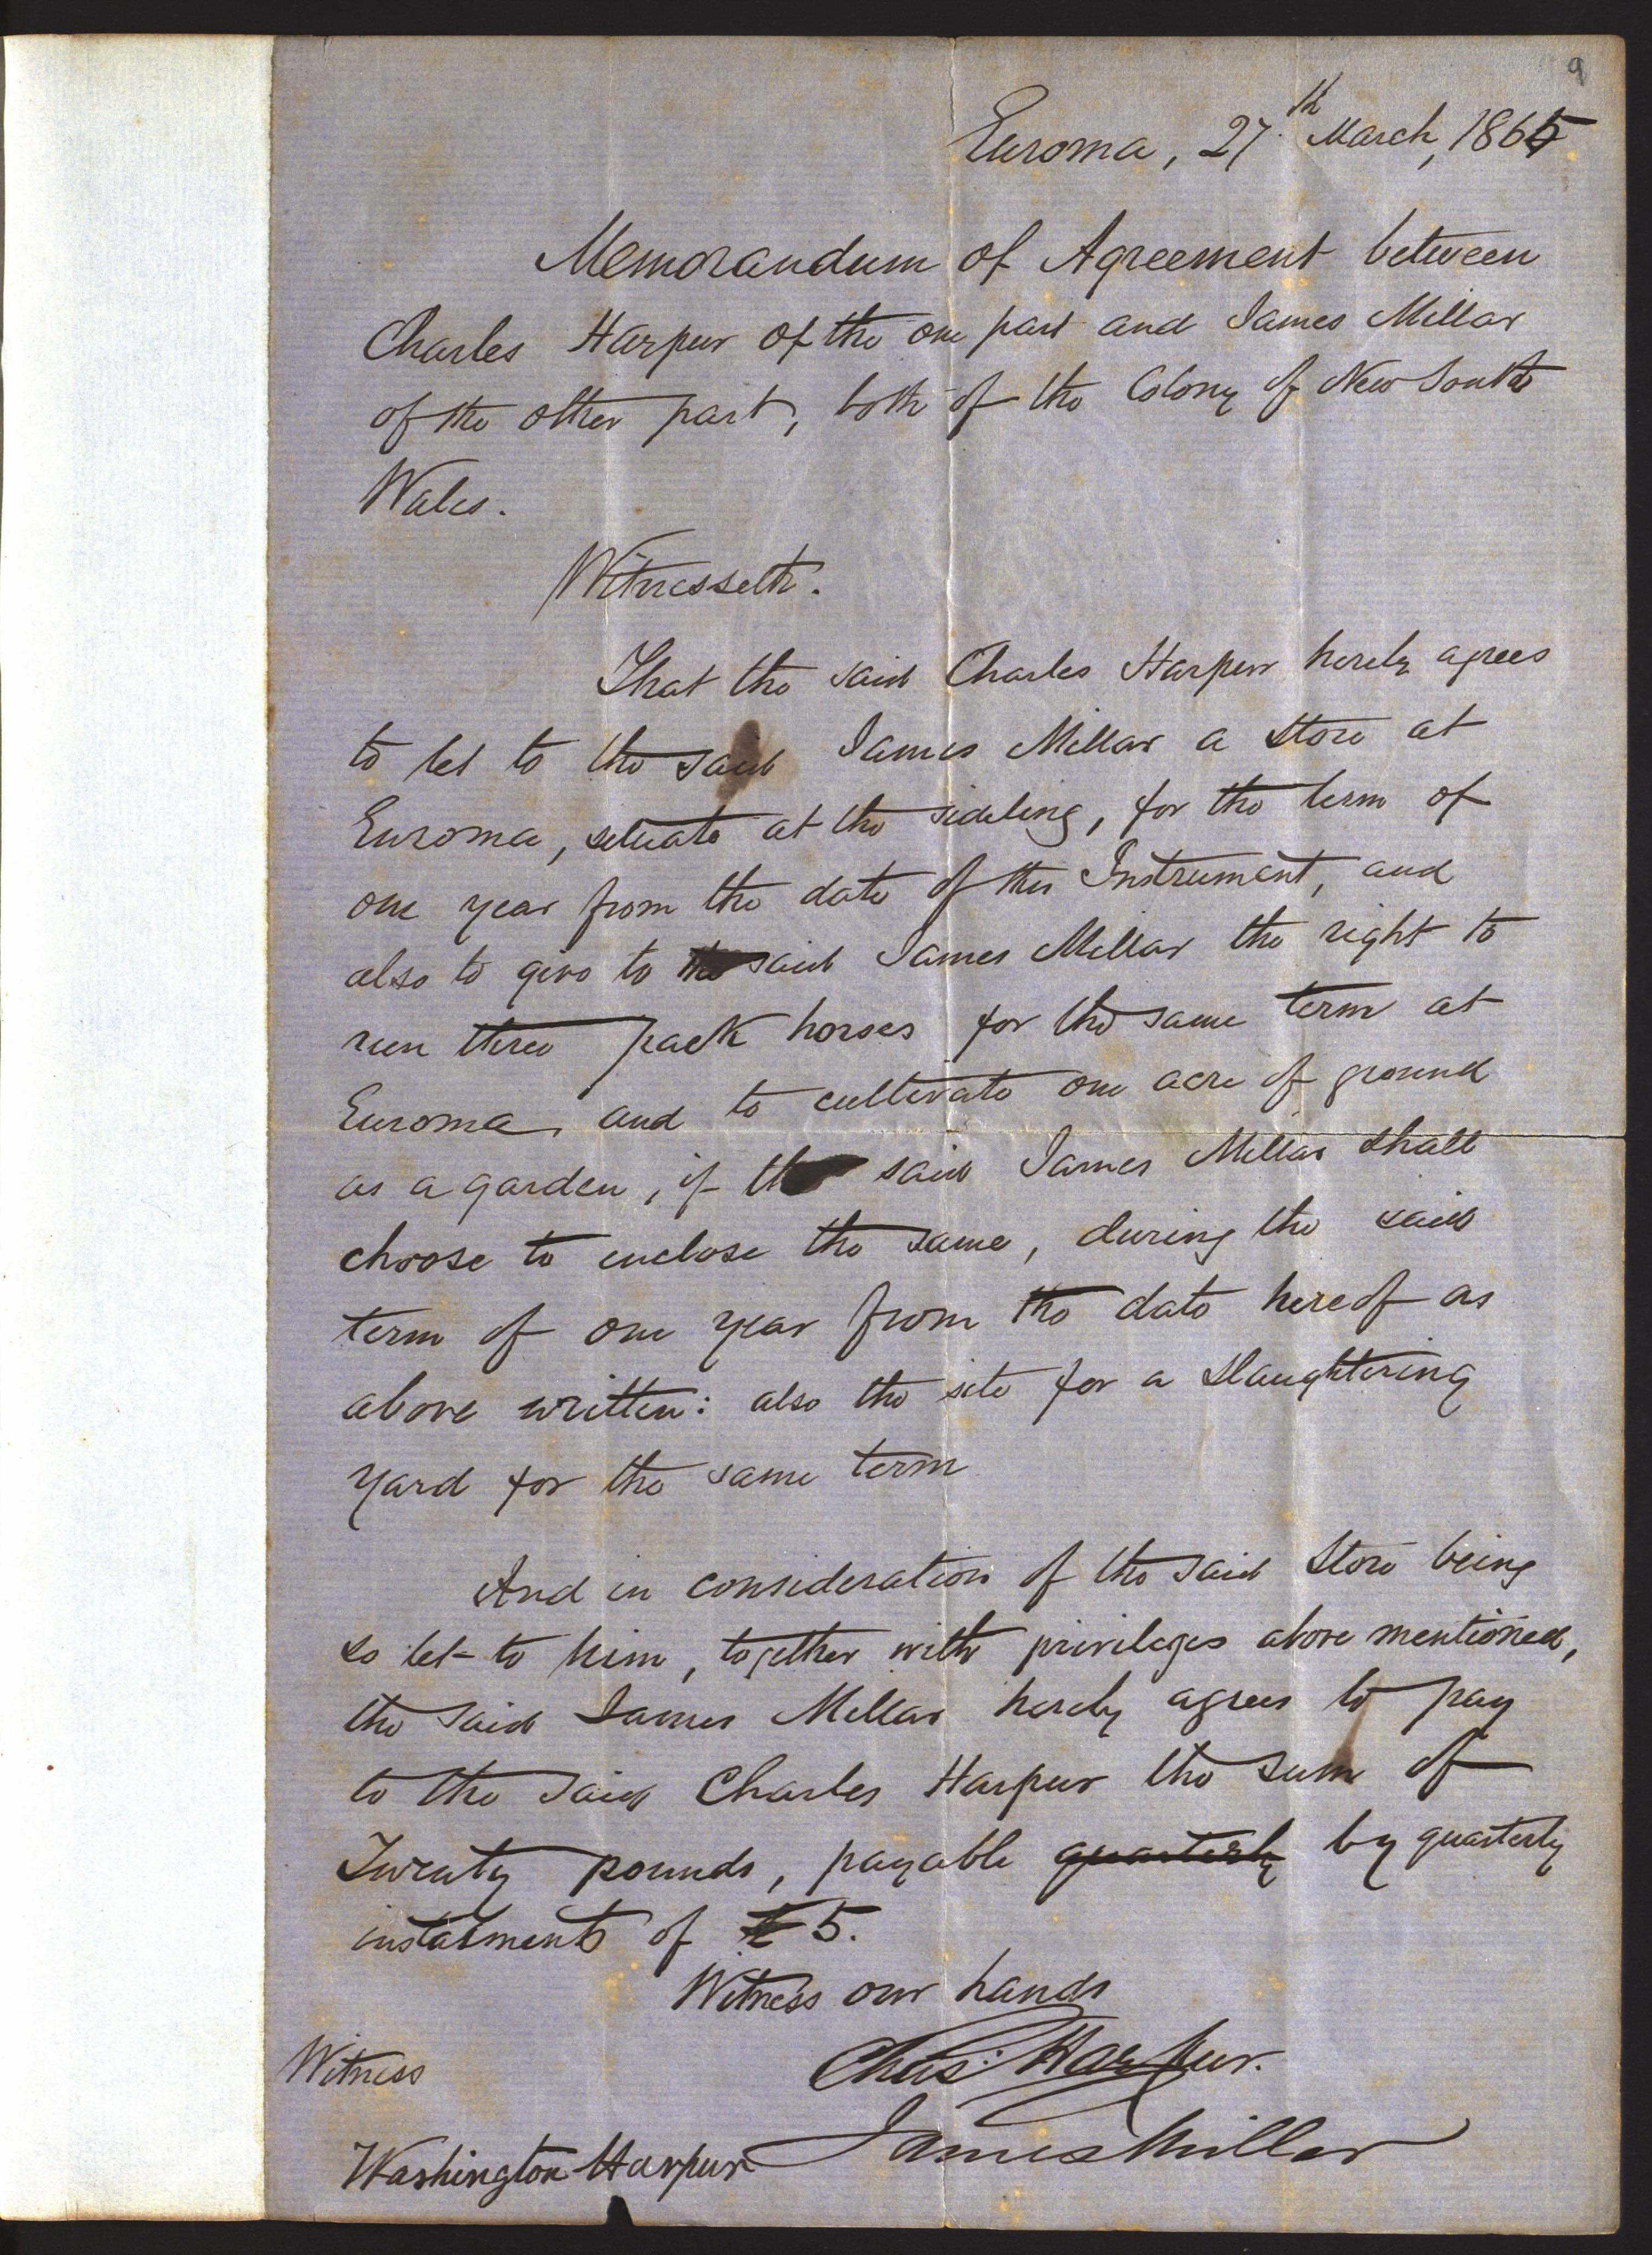 9
Euroma, 27.th March, 1865
Memorandum of Agreement between
Charles Harpur of the one part and James Millar
of the other part, both of the Colony of New South
Wales.
Witnesseth.
That the said Charles Harpur hereby agrees
to let to the said James Millar a store at
Euroma, situate at the sideling, for the term of
one year from the date of this Instrument, and
also to give to the said James Millar the right to
run three pack horses for the same term at
Euroma, and to cultivate one acre of ground
as a garden, if the said James Millar shall
choose to enclose the same, during the said
term of one year from the date hereof as
above written: also the site for a slaughtering
yard for the same term
And in consideration of the said store being
so let to him, together with privileges above mentioned,
the said James Millar hereby agrees to pay
to the said Charles Harpur the sum of
Twenty pounds, payable quarterly by quarterly
instalments of £5.
Witness our hands
Witness
Chas: Harpur.
James Millar
Washington Harpur